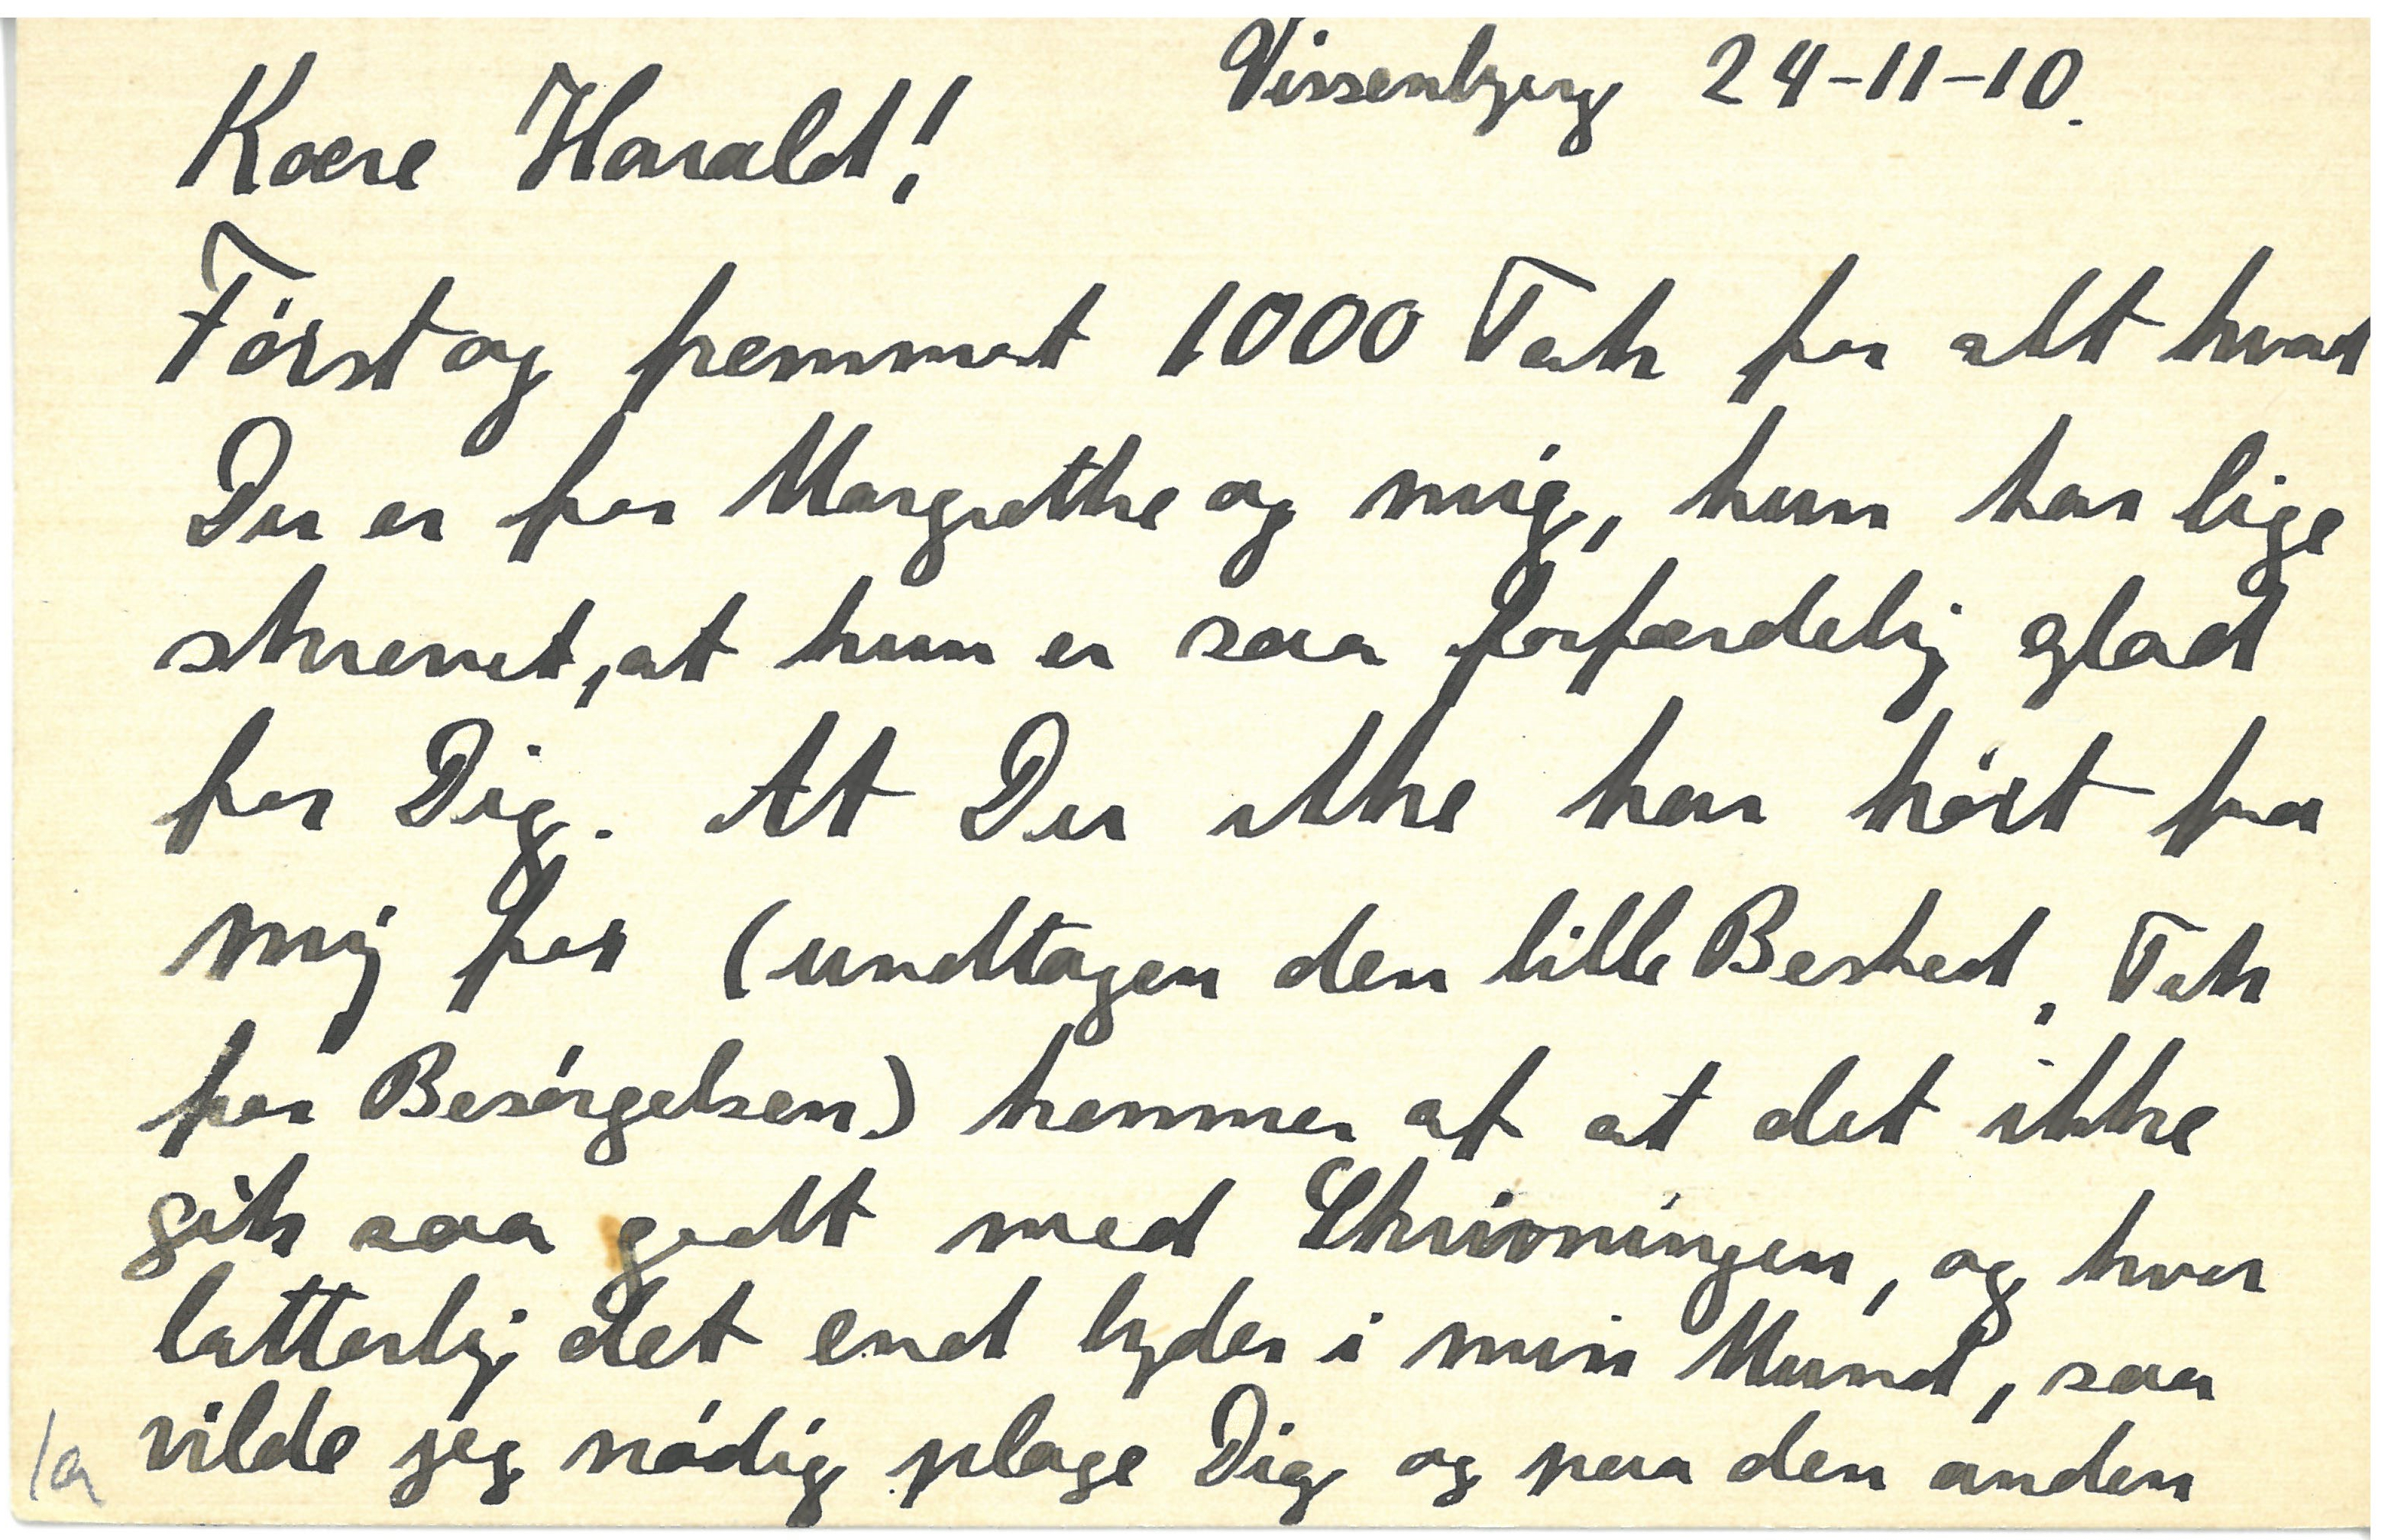 Vissenbjerg 24-11-10.
Kære Harald!
Først og fremmest 1000 Tak for alt hvad
Du er for Margrethe og mig, hun har lige
skrevet, at hun er saa forfærdelig glad
for Dig. At Du ikke har hørt fra
mig før (undtagen den lille Besked, Tak
for Besørgelsen) kommer af at det ikke
gik saa godt med Skrivningen, og hvor
latterlig det end lyder i min Mund, saa
vilde jeg nødig plage Dig og paa den anden
1a